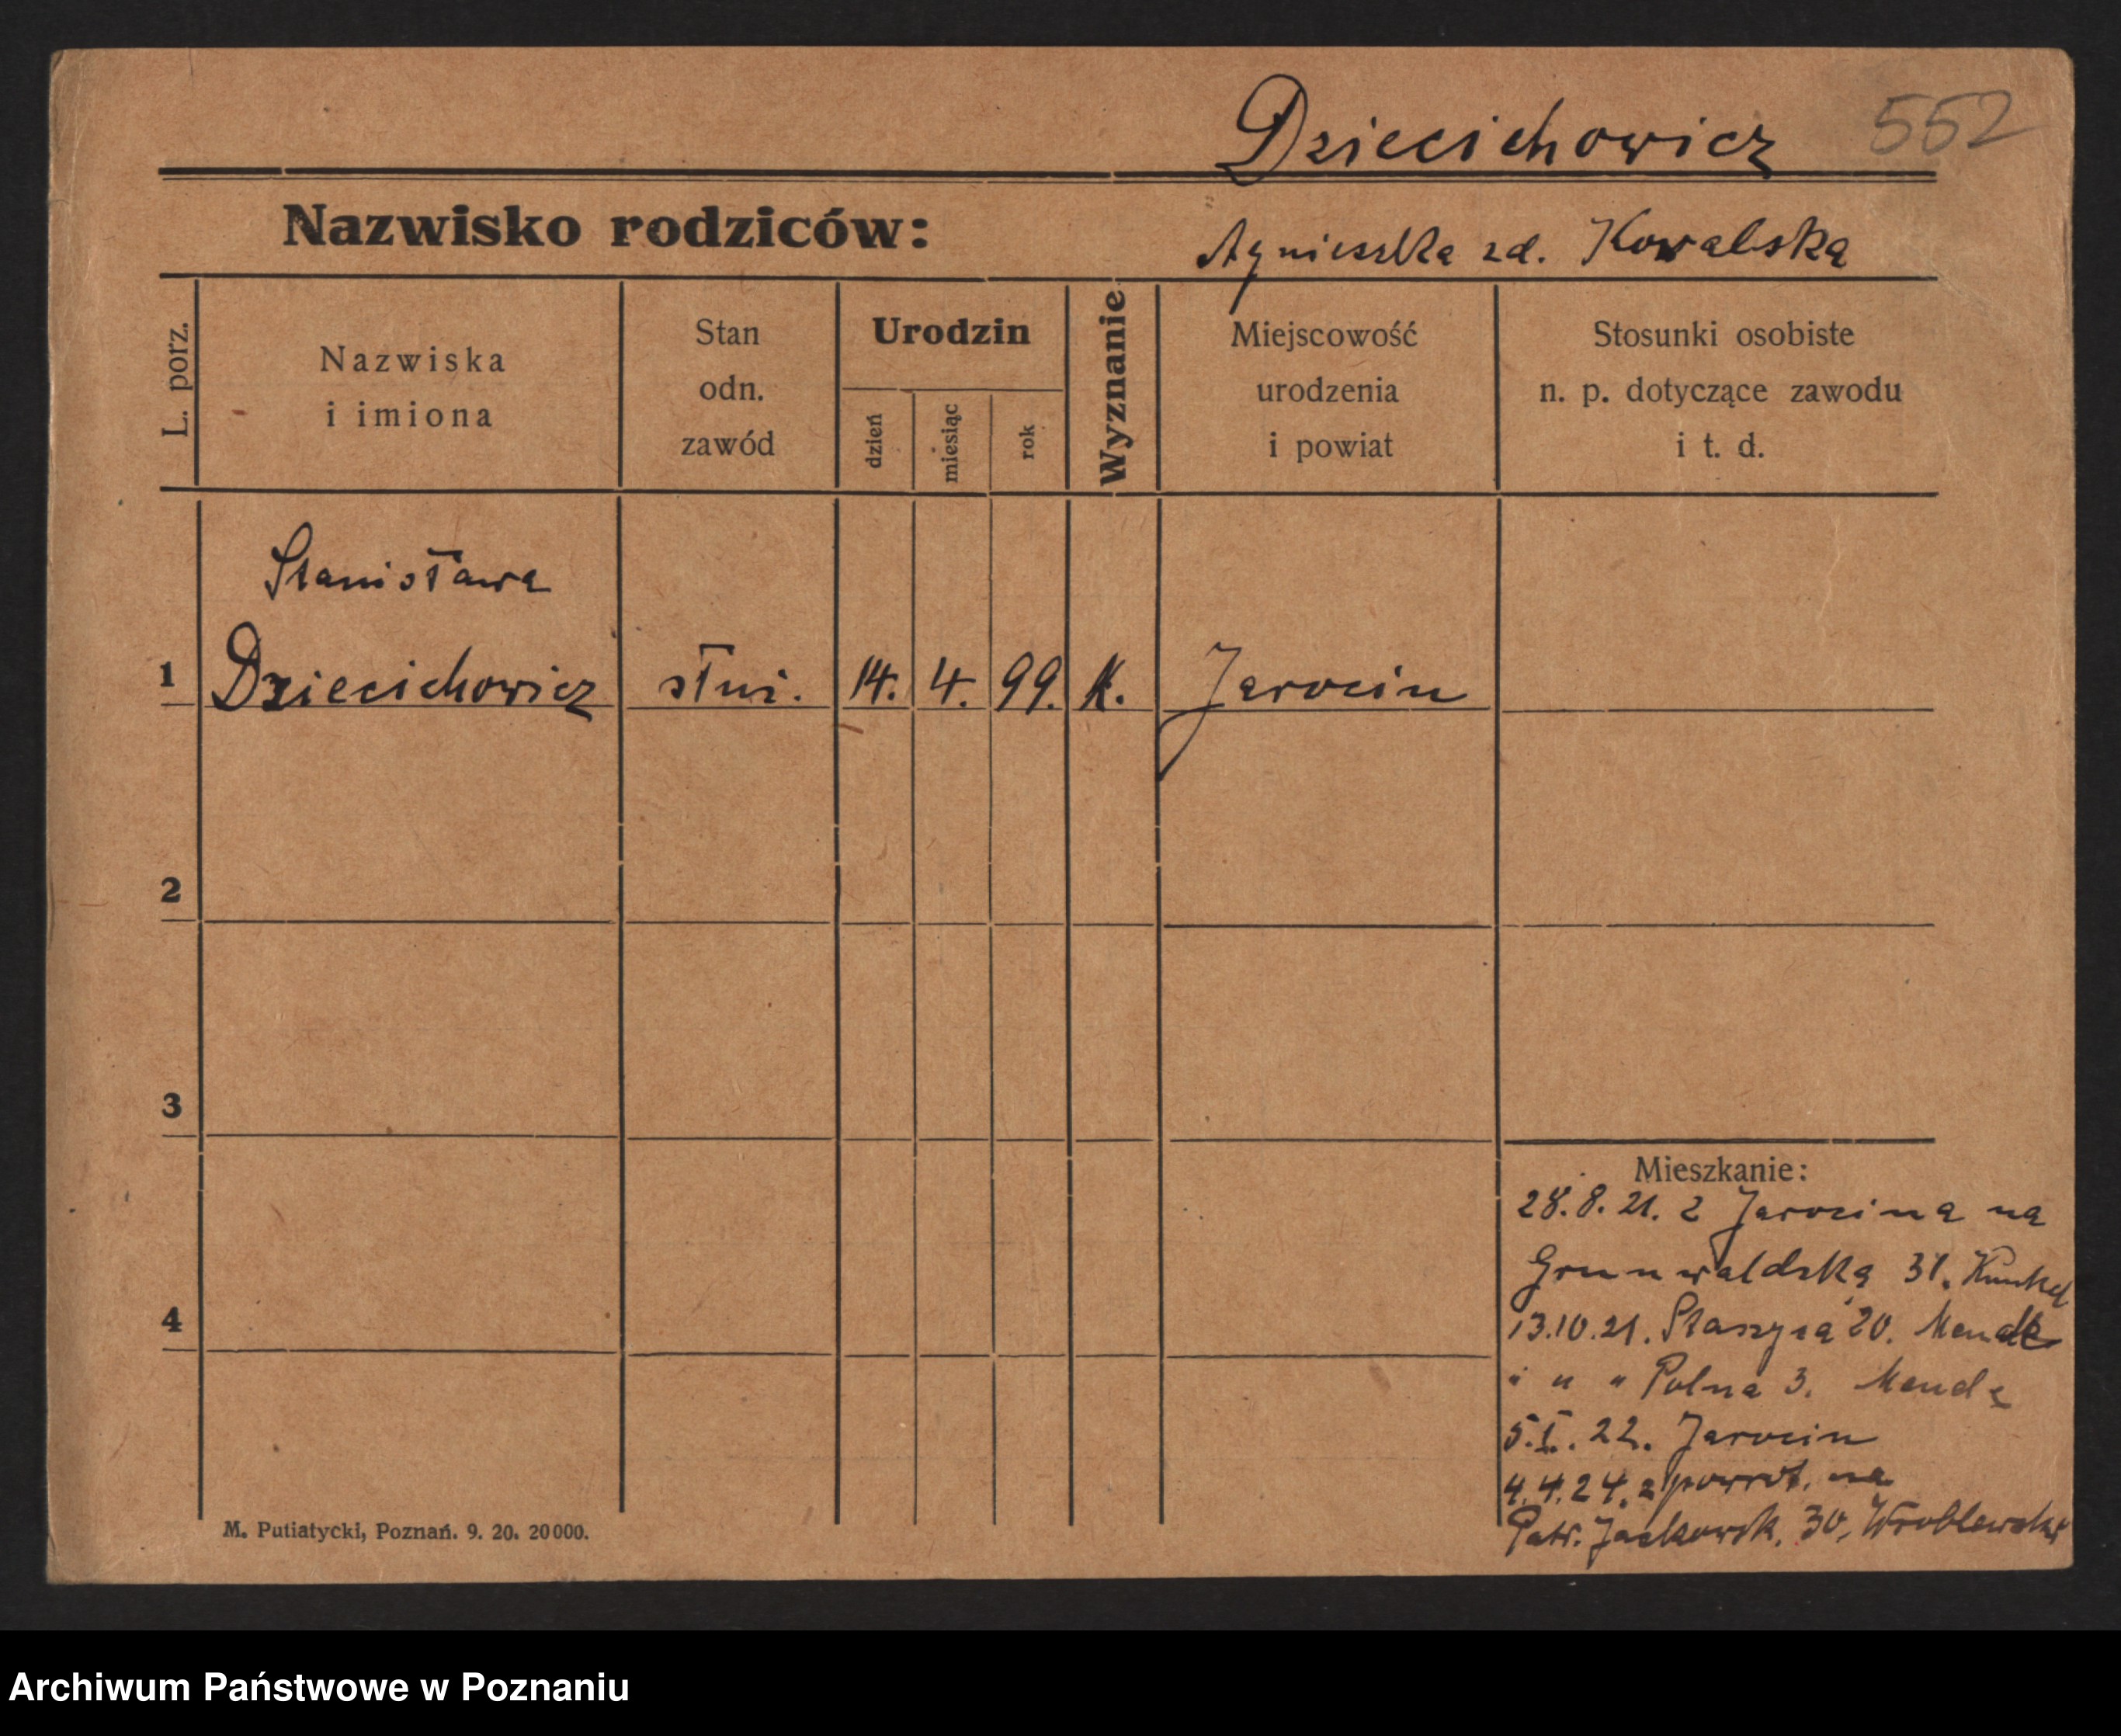 Dziecichowicz 552
Nazwisko rodziców:
Agnieszka zd. Kowalska
L. porz.
Nazwiska
i imiona
Stan
odn.
zawód
Urodzin
dzień
miesiąc
rok
Wyznanie
Miejscowość
urodzenia
i powiat
Stosunki osobiste
n. p. dotyczące zawodu
i t. d.
Stanisława
1 Dziecichowicz służ. 14. 4. 99. K. Jarocin
2
3
4
Mieszkanie:
28.8.21. z Jarocina na
Grunwaldska 31. Kunkel
13.10.21. Staszyca 20. Mende
" " " Polna 3. Mende
5.I.22. Jarocin
4.4.24. z powrot. na
Patr. Jackowsk. 30, Wroblewski
M. Putiatycki, Poznań. 9. 20. 20000.
Archiwum Państwowe w Poznaniu